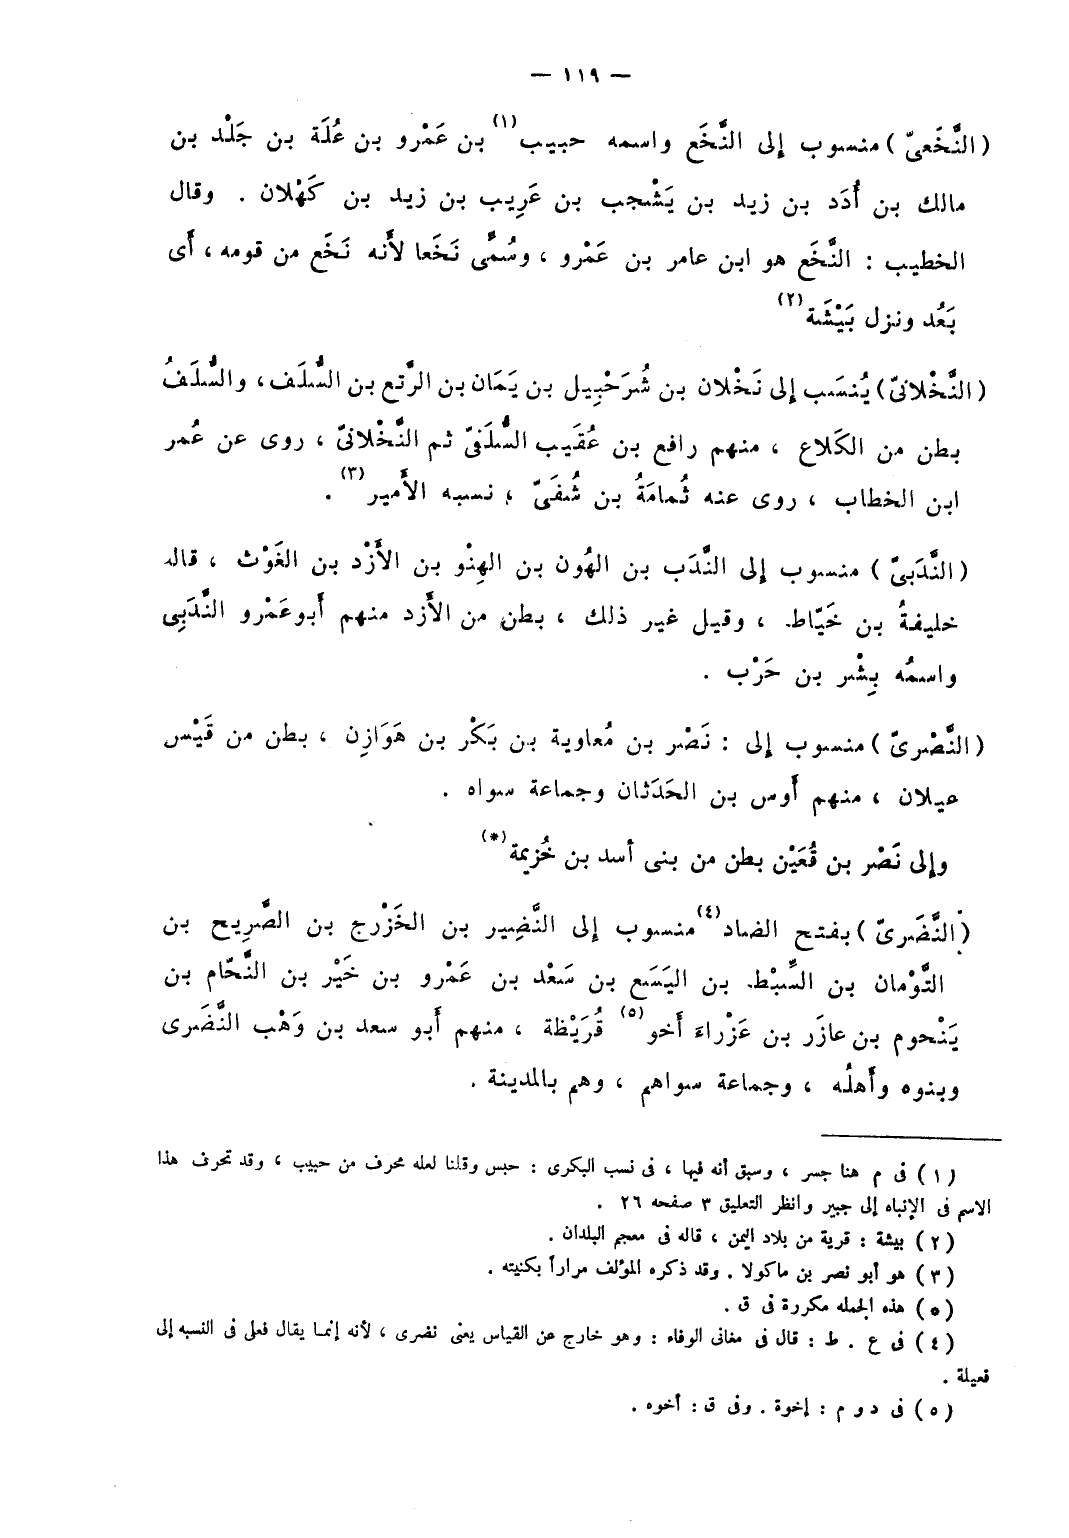 — ١١٩ —
( النَّخَعىّ ) منسوب إلى النَّخَع واسمه حبيب(١) بن عَمْرو بن عُلَة بن جَلْد بن
مالك بن أُدَد بن زيد بن يَشْجب بن عَرِيب بن زيد بن كَهْلان . وقال
الخطيب : النَّخَع هو ابن عامر بن عَمْرو ، وسُمِّى نَخَعا لأَنه نَخَع من قومه ، أَى
بَعُد ونزل بَيْشَة(٢)
( النَّخْلانىّ ) يُنسَب إلى نَخْلان بن شُرَحْبِيل بن يَمَان بن الرَّتع بن السُّلَف ، والسُّلَفُ
بطن من الكَلاع ، منهم رافع بن عُقَيب السُّلَفىّ ثم النَّخْلانىّ ، روى عن عُمر
ابن الخطاب ، روى عنه ثُمامَةُ بن شُفَىّ ؛ نسبه الأَمير(٣) .
( النَّدَبىّ ) منسوب إلى النَّدَب بن الهُون بن الهِنْو بن الأَزْد بن الغَوْث ، قاله
خليفةُ بن خَيّاط ، وقيل غير ذلك ، بطن من الأَزد منهم أَبو عَمْرو النَّدَبِى
واسمُه بِشْر بن حَرْب .
( النَّصْرىّ ) منسوب إلى : نَصْر بن مُعاوية بن بَكْر بن هَوَازِن ، بطن من قَيْس
عيلان ، منهم أَوس بن الحَدَثان وجماعة سواه .
وإلى نَصْر بن قُعَيْن بطن من بنى أسد بن خُزيمة(*)
( النَّضَرىّ ) بفتح الضاد(٤) منسوب إلى النَّضِير بن الخَزْرج بن الصَّرِيح بن
التَّوْمان بن السِّبْط بن اليَسَع بن سَعْد بن عَمْرو بن خَيْر بن النَّحّام بن
يَنْحوم بن عازَر بن عَزْراءَ أَخو(٥) قُرَيْظة ، منهم أَبو سعد بن وَهْب النَّضَرى
وبنوه وأَهلُه ، وجماعة سواهم ، وهم بالمدينة .
( ١ ) فى م هنا جسر ، وسبق أنه فيها ، فى نسب البكرى : حبس وقلنا لعله محرف من حبيب ، وقد تحرف هذا
الاسم فى الإنباه إلى جبير وانظر التعليق ٣ صفحه ٢٦ .
( ٢ ) بيشة : قرية من بلاد اليمن ، قاله فى معجم البلدان .
( ٣ ) هو أبو نصر بن ماكولا . وقد ذكره المؤلف مراراً بكنيته .
( * ) هذه الجمله مكررة فى ق .
( ٤ ) فى ع . ط : قال فى مغانى الوفاء : وهو خارج عن القياس يعنى نضرى ، لأنه إنما يقال فعلى فى النسبه إلى
فعيلة .
( ٥ ) فى د و م : إخوة . وفى ق : أخوه .